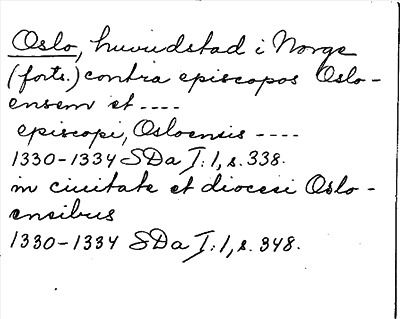 Oslo, huvudstad i Norge
(forts.) contra episcopos Oslo-
ensem et ----
episcopi, Osloensis ----
1330-1334 SDa I:1, s. 338.
in ciuitate et diocesi Oslo-
ensibus
1330-1334 SDa I:1, s. 348.